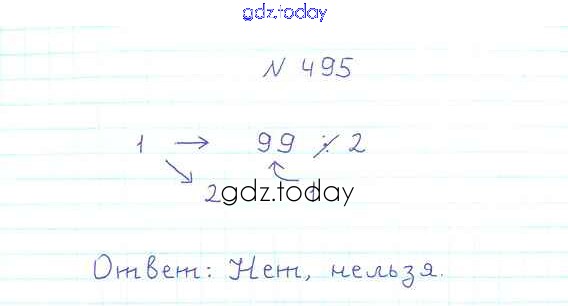 gdz.today
N 495
1 → 99 ⋮̸ 2
2 gdz.today
Ответ: Нет, нельзя.